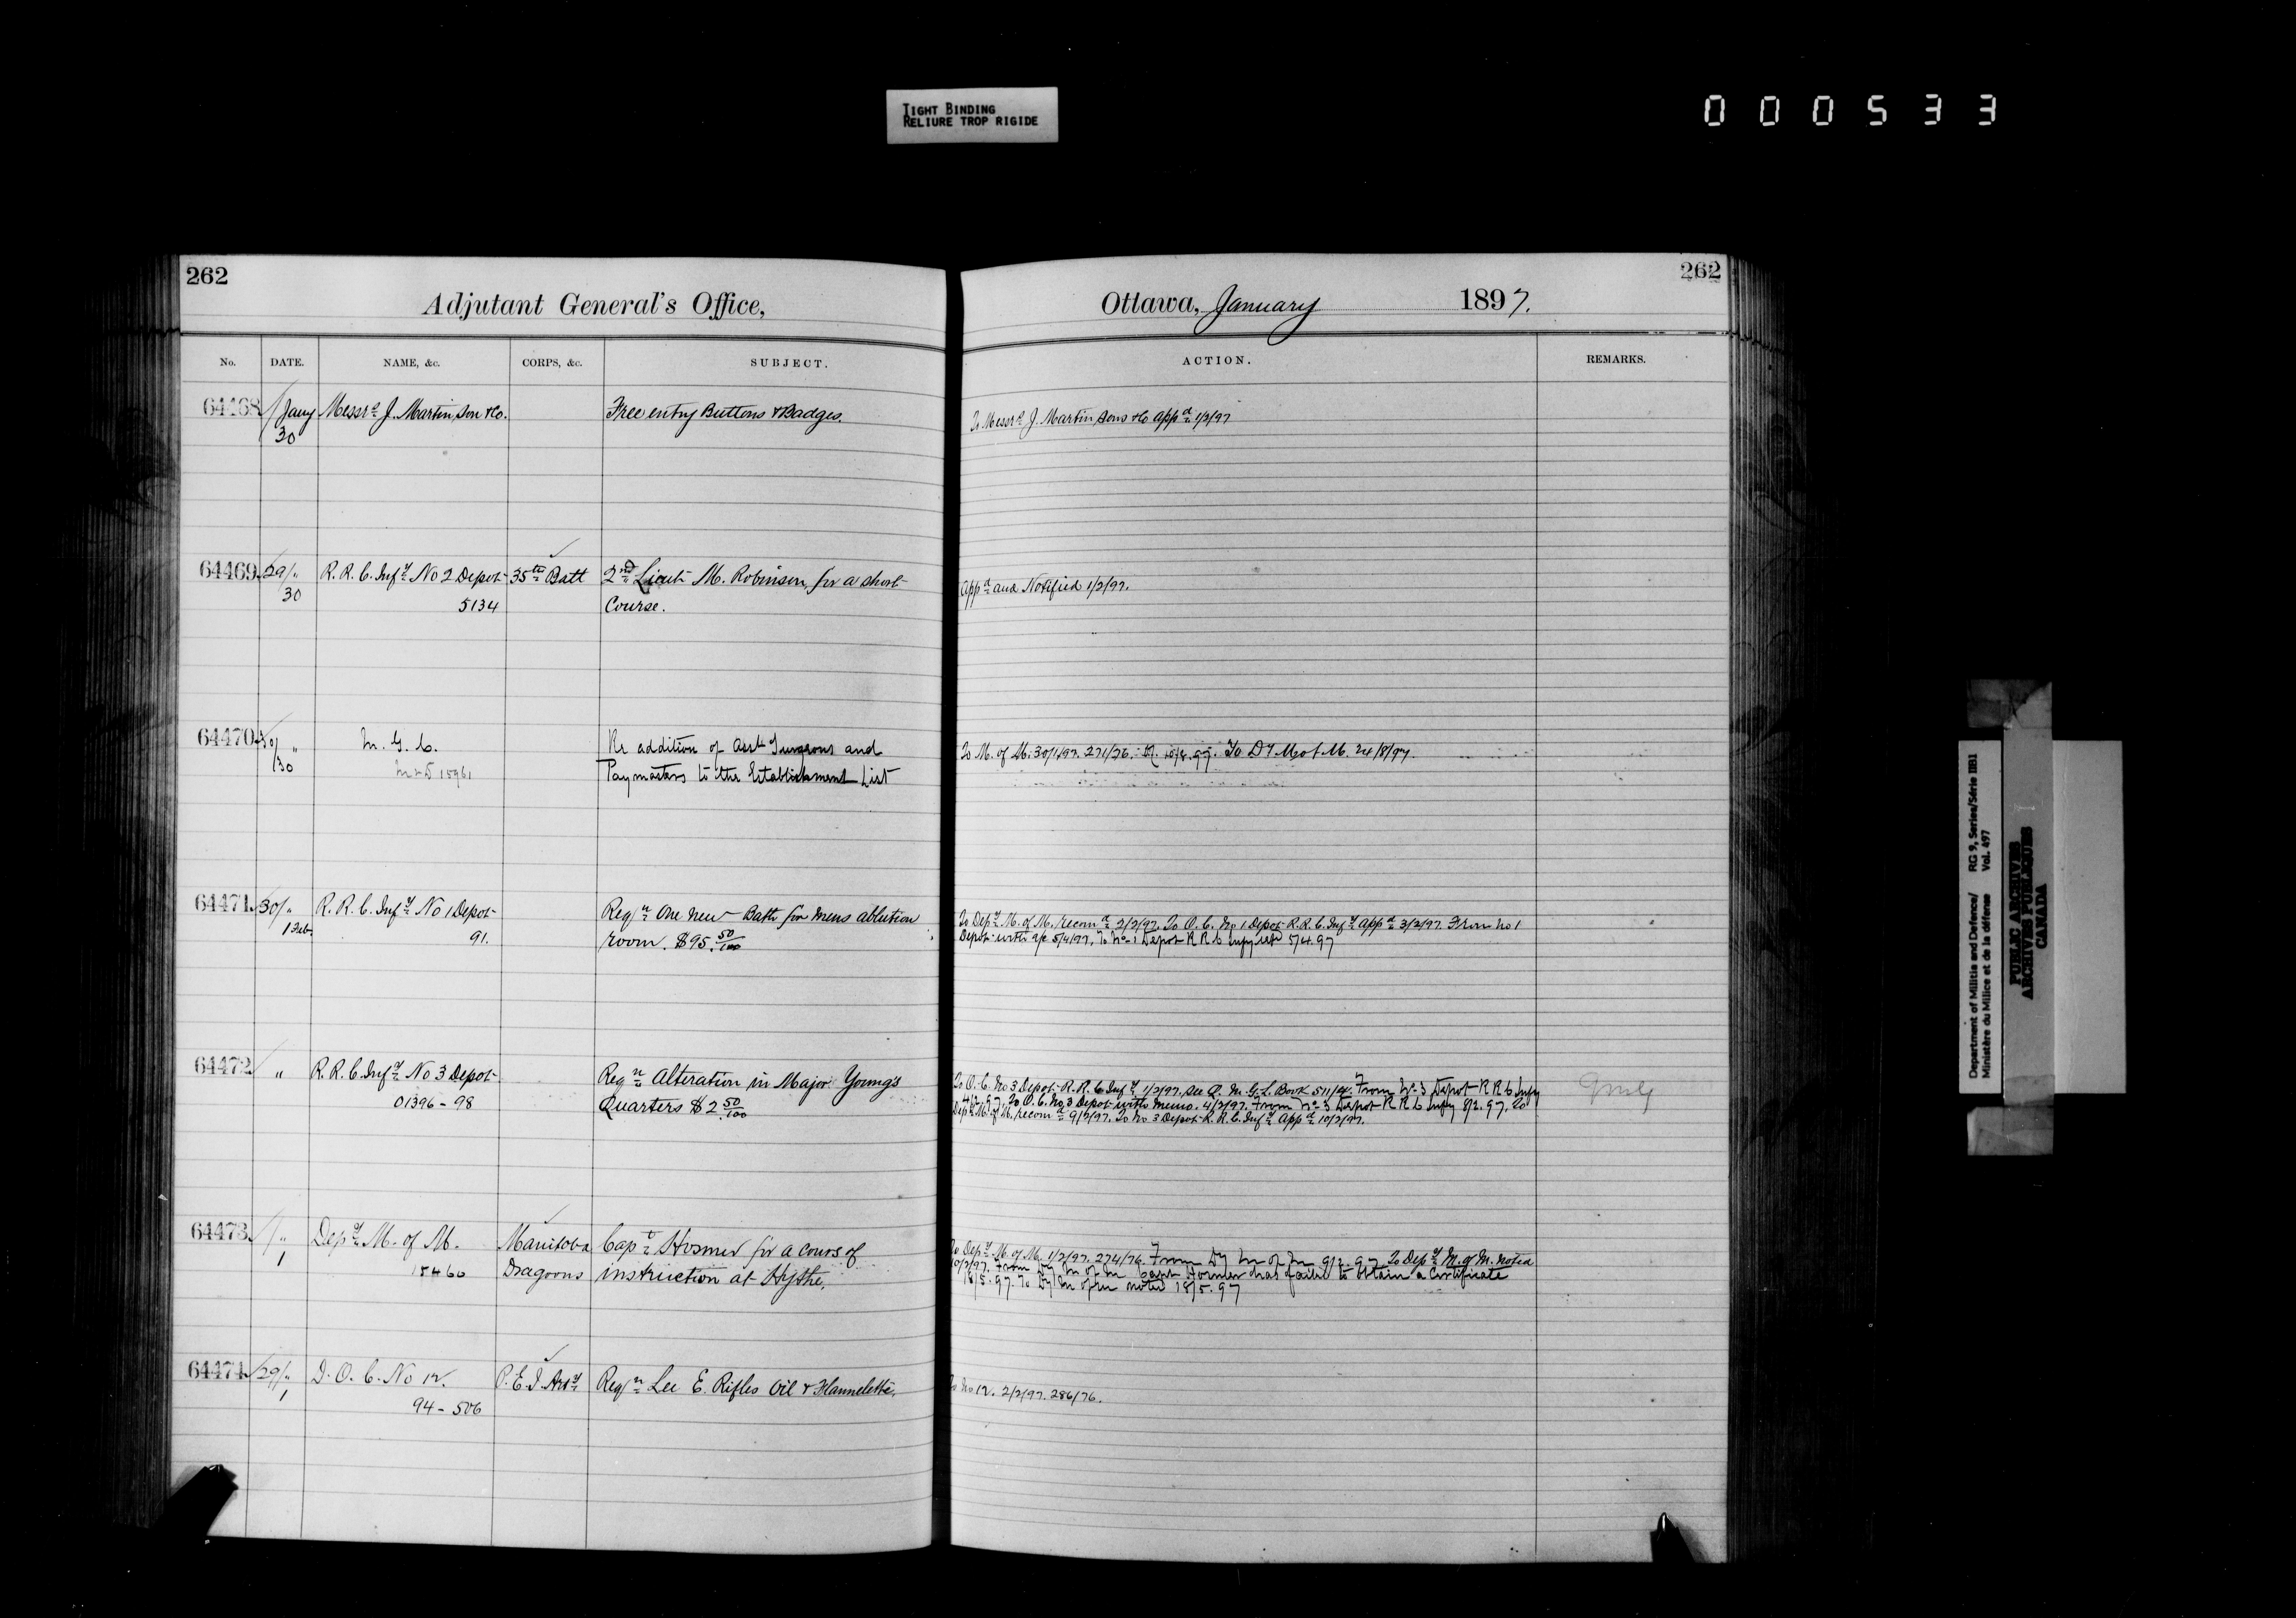 TIGHT BINDING
RELIURE TROP RIGIDE
000533
262
262
Adjutant General's Office,
Ottawa, January 1897.
No. DATE. NAME, &c. CORPS, &c. SUBJECT. ACTION. REMARKS.
64468 Jany Messrs J. Martin Son & Co. Free entry Buttons & Badges. To Messrs J. Martin Sons & Co appd 1/2/97
30
64469 29/" R. R. C. Infy No 2 Depot 35th Batt 2nd Lieut M. Robinson for a short
30 5134 Course.
Appd and Notified 1/2/97.
64470 30/" M. G. C. Re addition of Asst Surgeons and
30 15961 Paymasters to the Establishment List
To M. of M. 30/1/97. 271/76. To DY M of M. 24/8/97.
64471 30/" R. R. C. Infy No 1 Depot Reqn One new Bath for mens ablution
1 Feb 91. room. $95 50/100
To Depy M. of M. recomd 2/2/97. To O. C. No 1 Depot R. R. C. Infy appd 3/2/97. From No 1
Depot with a/c 5/4/97. To No 1 Depot R R C Infy 5/4.97
64472 " R. R. C. Infy No 3 Depot Reqn Alteration in Major Young's
01396-98 Quarters $2 50/100
To O. C. No 3 Depot R. R. C. Infy 1/2/97. See Q. M. G. L. Book 511/4. From No 3 Depot R R C Infy
4/2.97. To O. C. No 3 Depot with memo. 4/2/97. From No 3 Depot R R C Infy 8/2.97. To
Dep M. of M. recomd 9/2/97. To No 3 Depot R. R. C. Infy appd 10/2/97.
64473 " Depy M. of M. Manitoba Capt Hosmer for a cours of
1 15460 Dragoons instruction at Hythe.
To Depy M. of M. 1/2/97. 274/76. From Dy M of M 9/2.97. To Depy M. of M. noted
10/2/97. From Dy M of M Capt Hosmer has failed to obtain a Certificate
18/5.97. To Dy M of M noted 18/5.97
64474 29/" D. O. C. No 12. P. E. I. Arty Reqn Lee E. Rifles Oil & Flannelette.
1 94-506
To No 12. 2/2/97. 286/76.
Department of Militia and Defence/ RG 9, Series/Série IIB1
Ministère du Milice et de la défense Vol. 497
PUBLIC ARCHIVES
ARCHIVES PUBLIQUES
CANADA